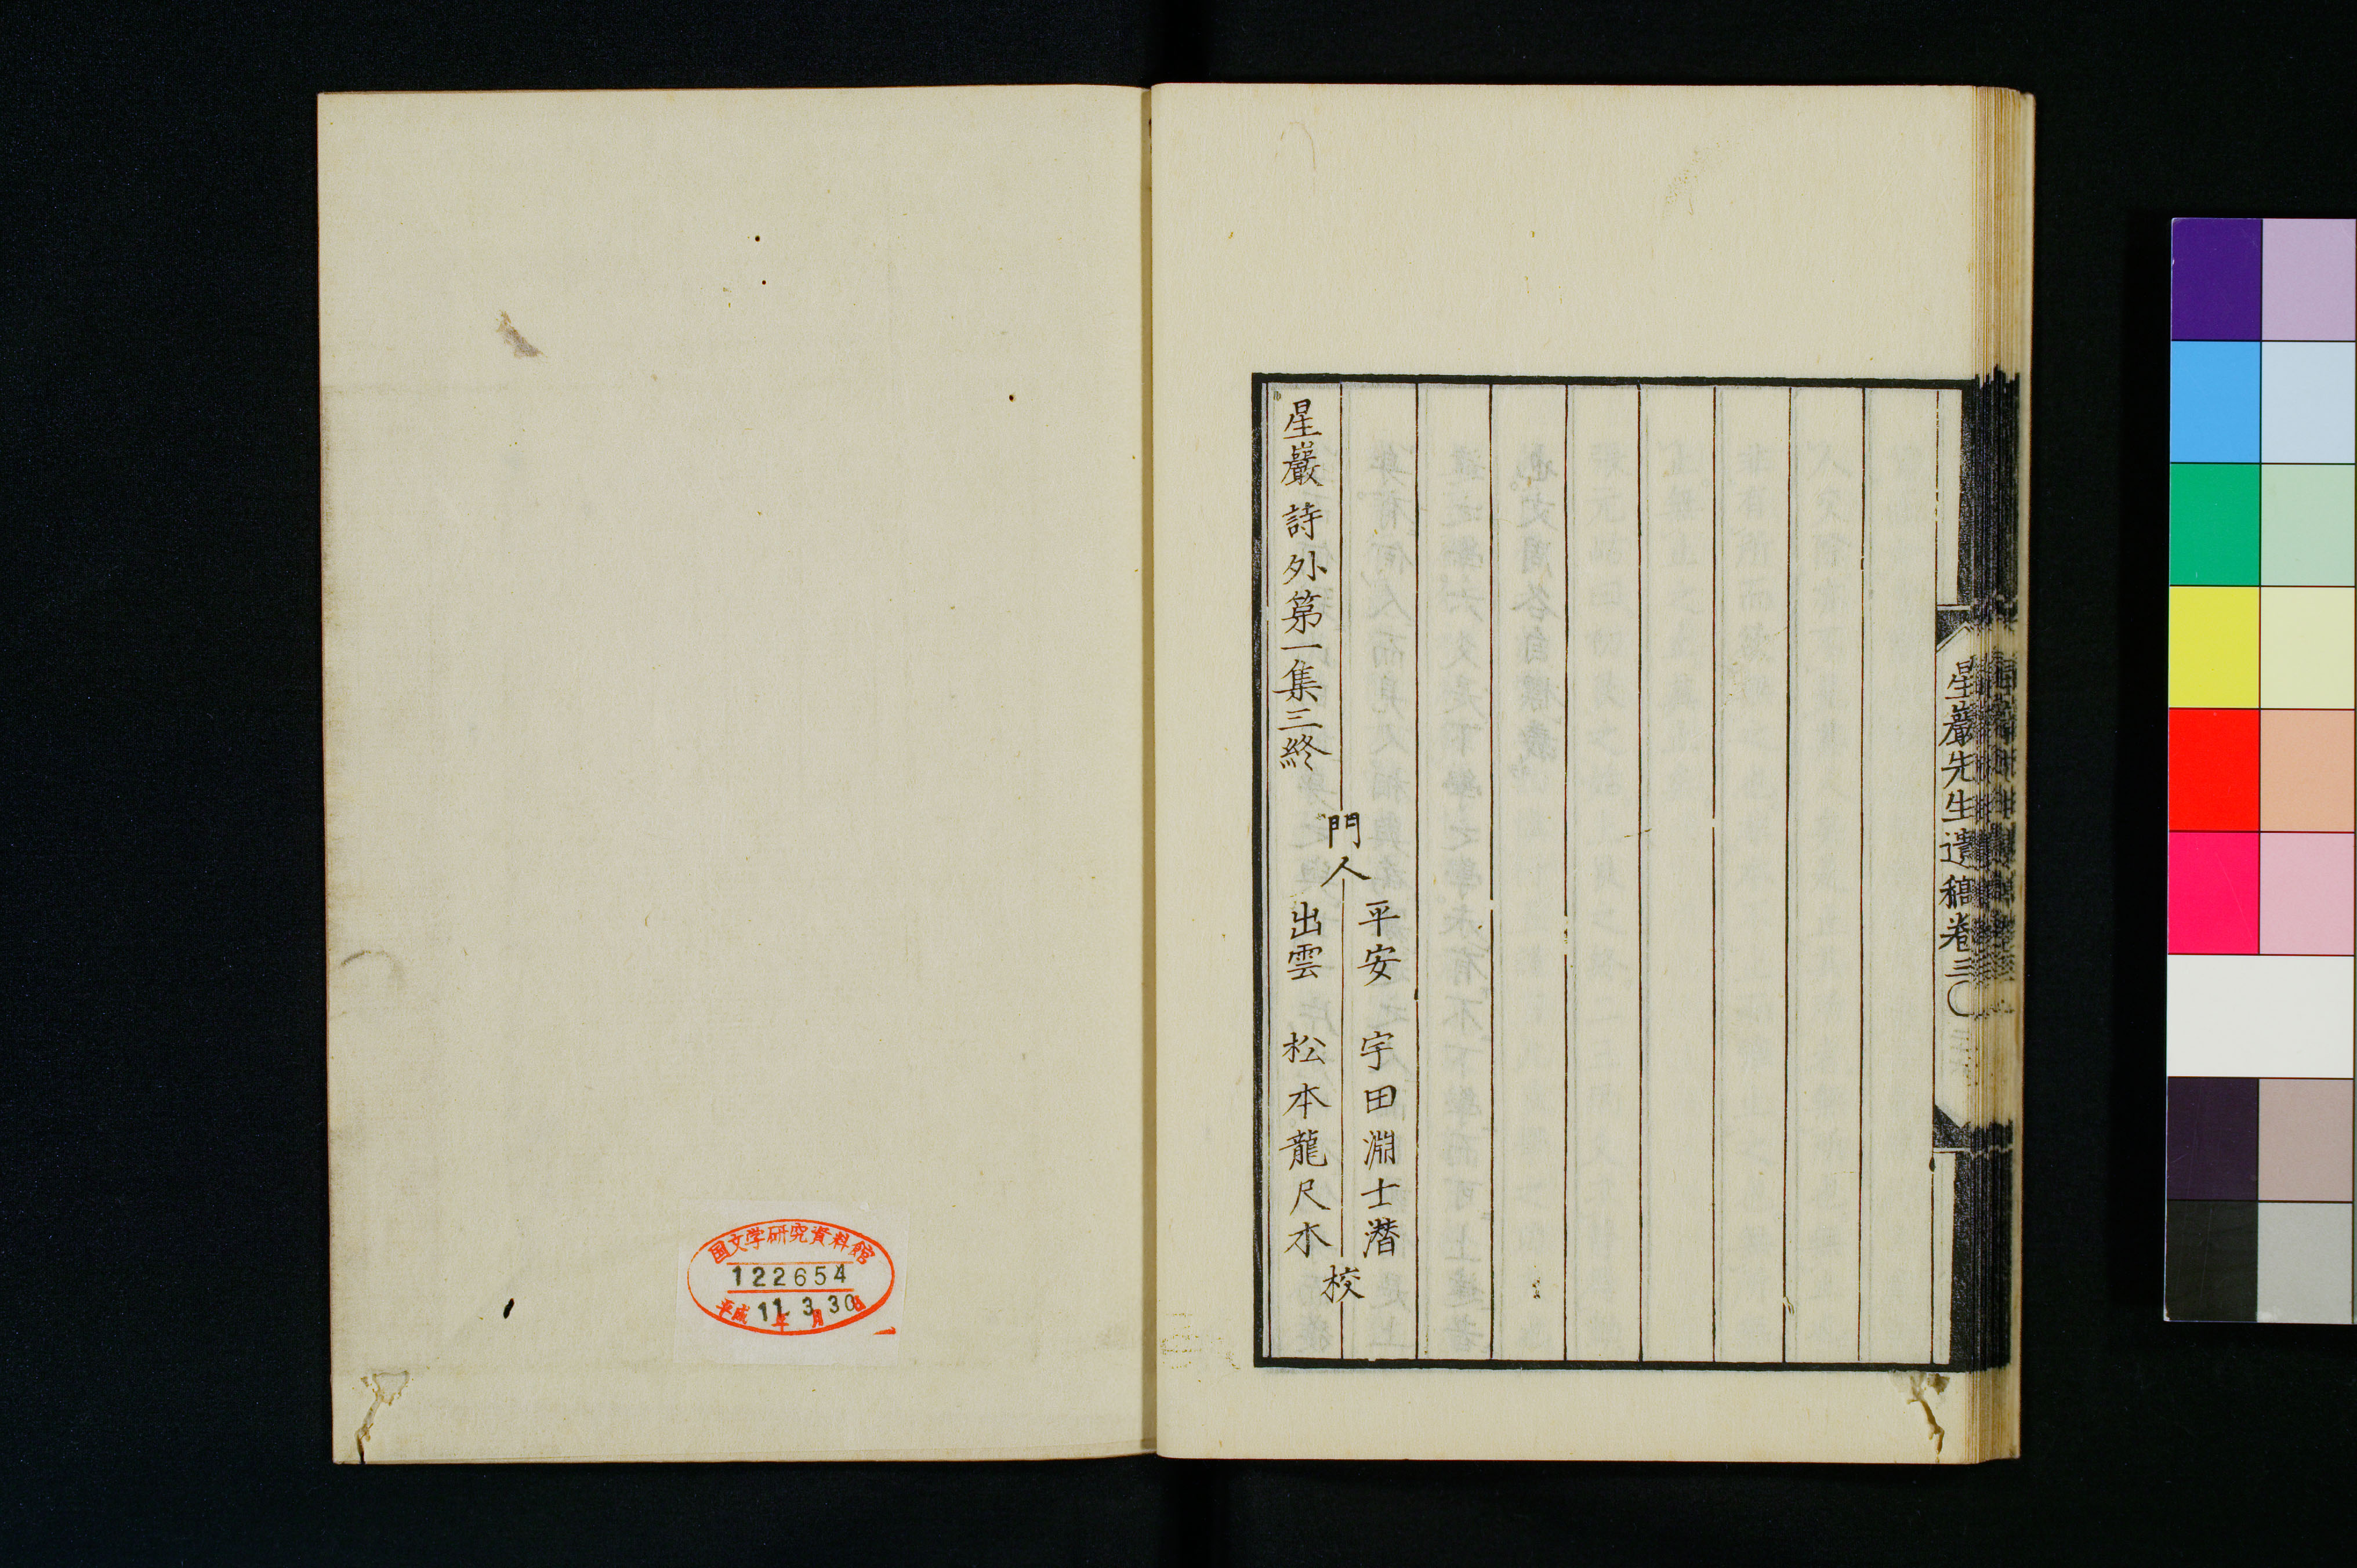 星巖先生遺稿卷三
門人
平安 宇田淵士潛
出雲 松本龍尺木
校
星巖詩外第一集三終
国文学研究資料館
122654
平成11年3月30日